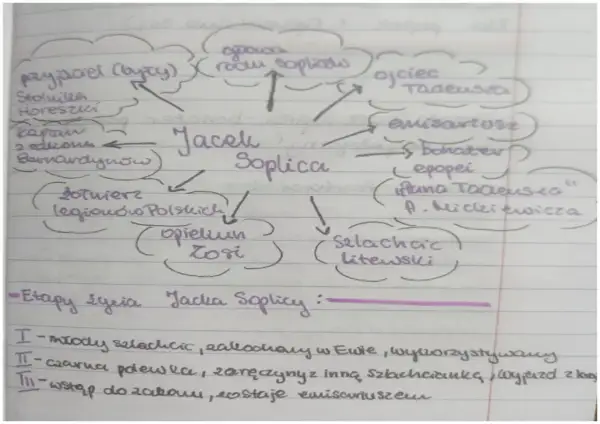 przyjaciel (były)
Stolnika
Horeszki
rodu Sopliców
ojciec
Tadeusza
Jacek
Soplica
emisariusz
bohater
epopei
„Pana Tadeusza"
A. Mickiewicza
kapłan
z zakonu
Bernardynów
żołnierz
legionów Polskich
opiekun
Zosi
szlachcic
litewski
- Etapy życia Jacka Soplicy :
I - młody szlachcic, zakochany w Ewie, wykorzystywany
II - czarna polewka, zaręczyny z inną szlachcianką, wyjazd z
III - wstąp do zakonu, zostaje emisariuszem